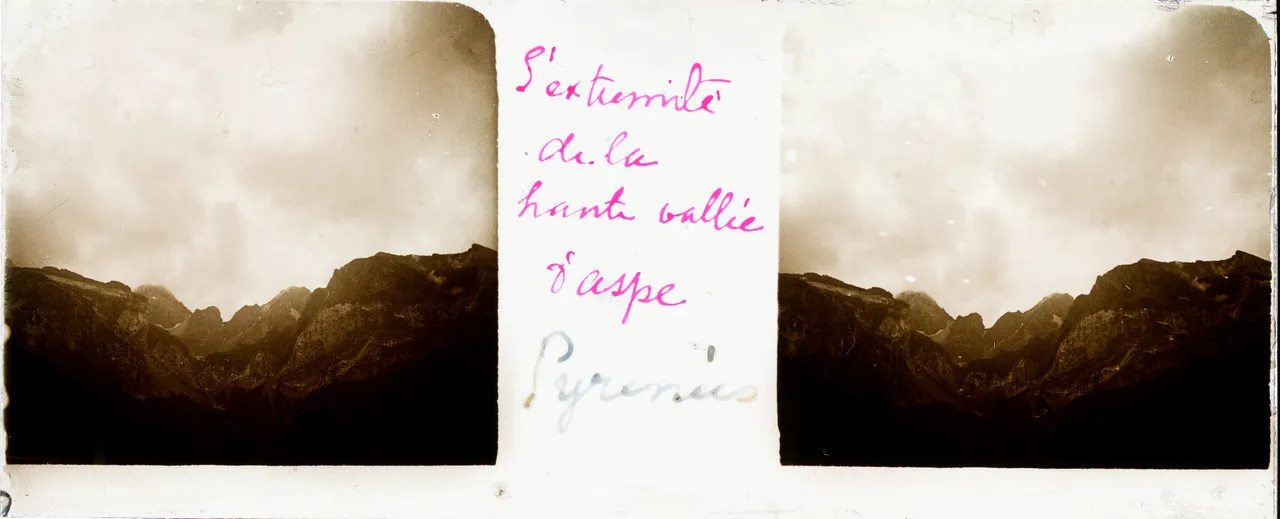 L'extremité
de la
haute vallée
d'aspe
Pyrenées